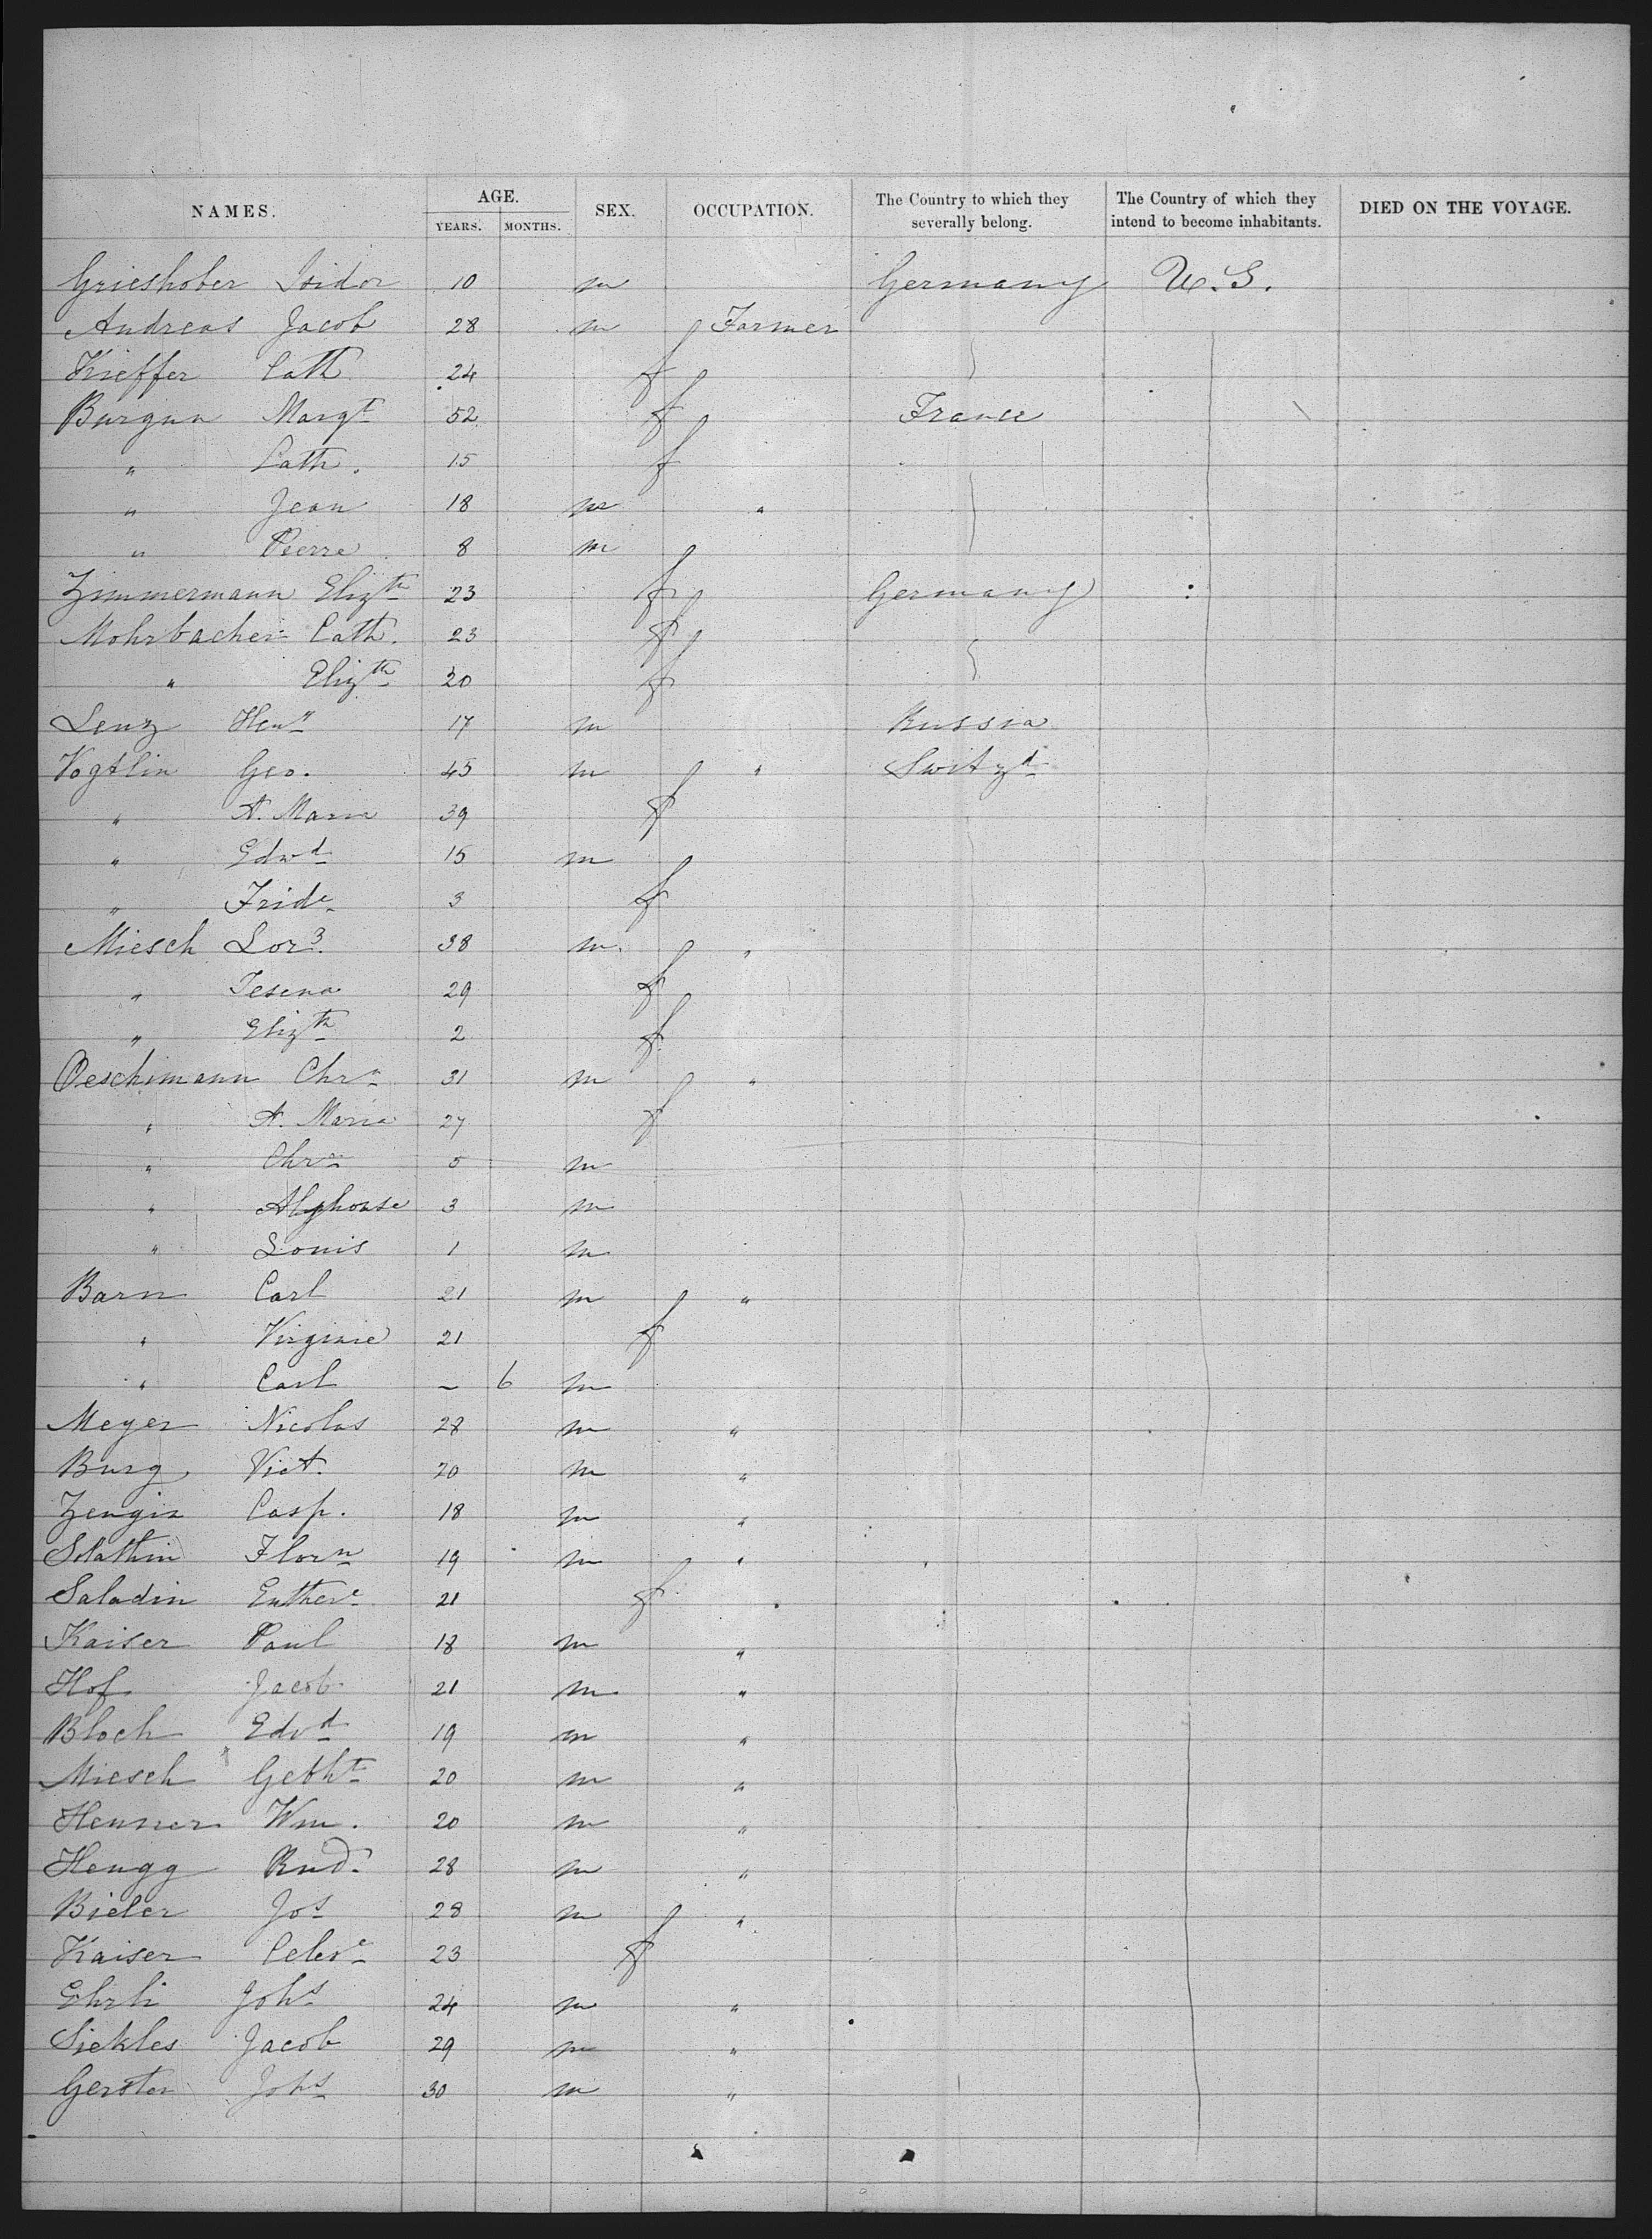 NAMES. AGE. YEARS. MONTHS. SEX. OCCUPATION. The Country to which they severally belong. The Country of which they intend to become inhabitants. DIED ON THE VOYAGE.
Grieshober Isidor 10 m Germany U.S.
Andreas Jacob 28 m Farmer
Kieffer Cath 24 f
Burgun Margt 52 f France
" Cath. 15 f
" Jean 18 m "
" Pierre 8 m
Zimmermann Elizth 23 f Germany :
Mohrbacher Cath. 23 f
" Elizth 20 f
Lenz Heny 17 m Russia
Vogtlin Geo. 45 m " Switzd
" A. Maria 39 f
" Edwd 15 m
" Fride 3 f
Miesch Lorz. 38 m "
" Tesena 29 f
" Elizth 2 f
Oeschimann Chrn 31 m "
" A. Maria 27 f
" Chrn 5 m
" Alphonse 3 m
" Louis 1 m
Barn Carl 21 m "
" Virginie 21 f
" Carl ~ 6 m
Meyer Nicolas 28 m "
Burg Vict. 20 m "
Zengin Casp. 18 m "
Florn 19 m "
Saladin 21 f
Kaiser Paul 18 m "
Hof Jacob 21 m "
Bloch Edvd 19 m "
Miesch Gebht 20 m "
Wm. 20 m "
Hengg Rudf 28 m "
Bieler Jos 28 m "
Kaiser 23 f
Ehrli Johs 24 m "
Sickles Jacob 29 m "
Gerster Johs 30 m "